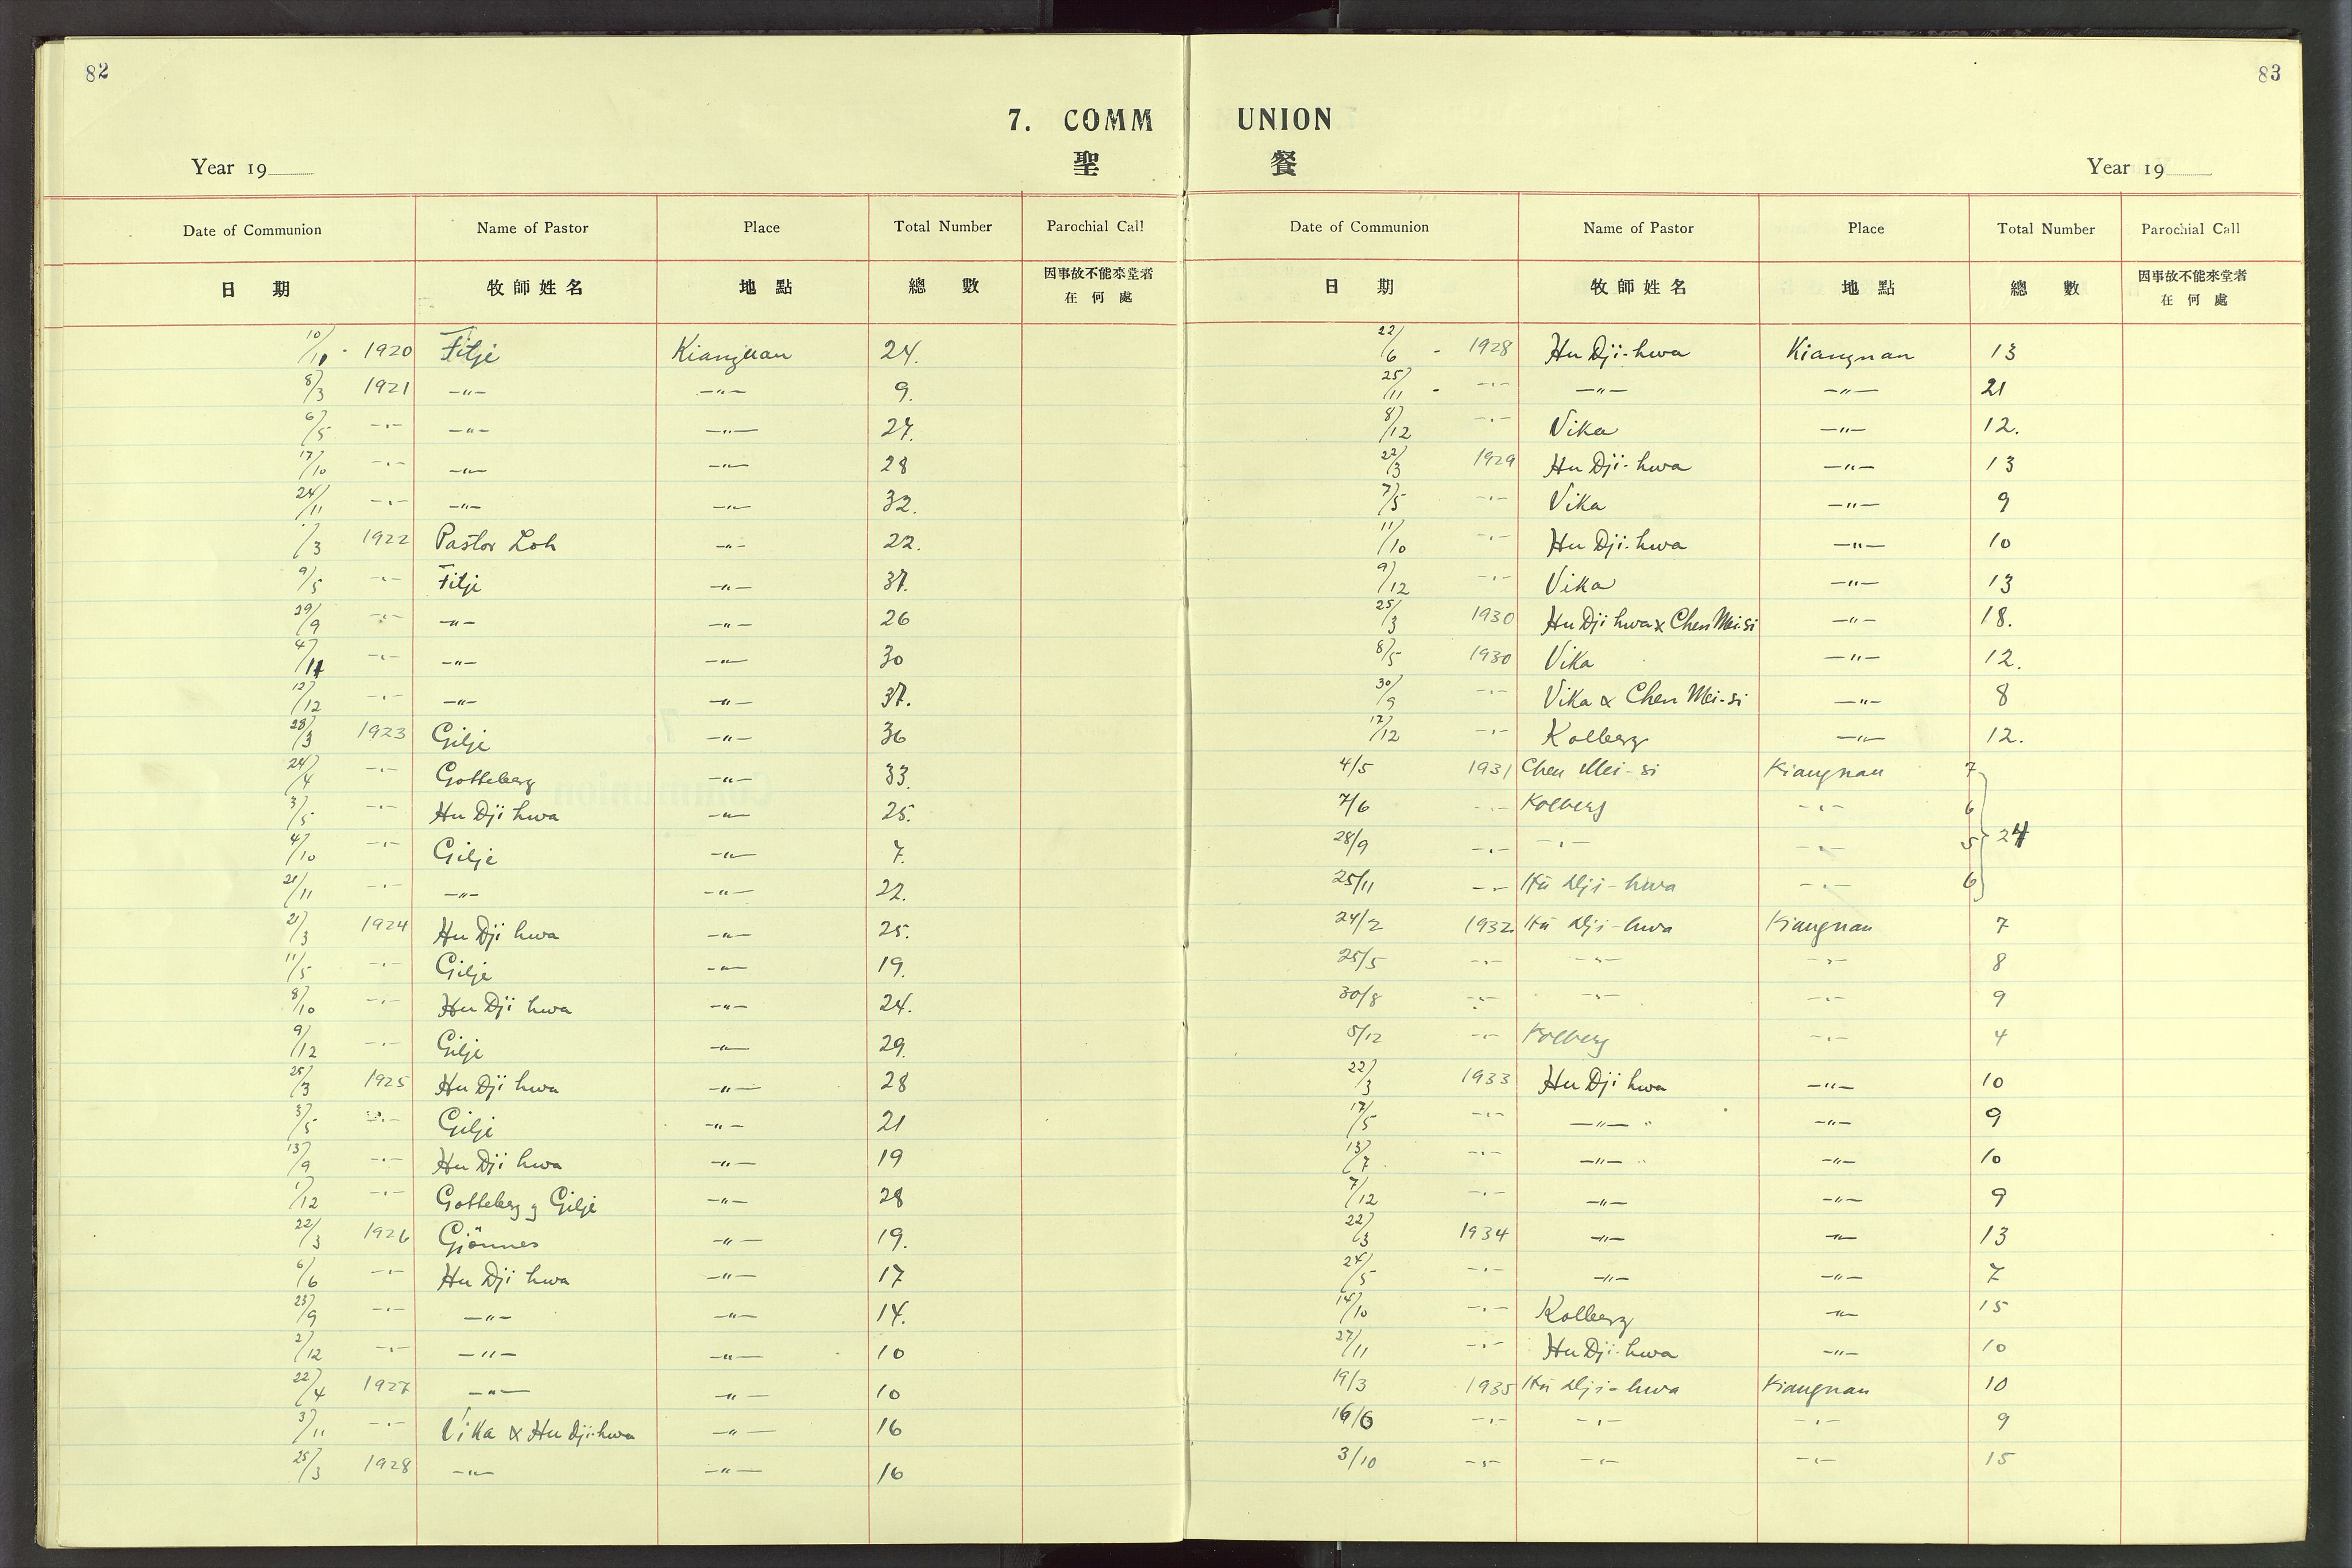 82
7. COMM
聖
Year 19
Date of Communion Name of Pastor Place Total Number Parochial Call
日 期 牧師姓名 地點 總數 因事故不能來堂者
在何處
10/10 - 1920 Filje Kiangnan 24.
8/3 1921 -"- -"- 9.
6/5 -"- -"- -"- 27.
17/10 -"- -"- -"- 28
24/11 -"- -"- -"- 32.
/3 1922 Pastor Loh -"- 22.
9/5 -"- Filje -"- 37.
29/9 -"- -"- -"- 26
4/11 -"- -"- -"- 30
12/12 -"- -"- -"- 37.
28/3 1923 Gilje -"- 36
24/4 -"- Gotteberg -"- 33.
3/5 -"- Hu Dji hwa -"- 25.
4/10 -"- Gilje -"- 7.
21/11 -"- -"- -"- 22.
21/3 1924 Hu Dji hwa -"- 25.
11/5 -"- Gilje -"- 19.
8/10 -"- Hu Dji hwa -"- 24.
9/12 -"- Gilje -"- 29.
25/3 1925 Hu Dji hwa -"- 28
3/5 -"- Gilje -"- 21
13/9 -"- Hu Dji hwa -"- 19
1/12 -"- Gotteberg g Gilje -"- 28
22/3 1926 Gjönnes -"- 19.
6/6 -"- Hu Dji hwa -"- 17
23/9 -"- -"- -"- 14.
2/12 -"- -"- -"- 10
22/4 1927 -"- -"- 10
3/11 -"- Vika & Hu Dji-hwa -"- 16
25/3 1928 -"- -"- 16
83
UNION
餐
Year 19
Date of Communion Name of Pastor Place Total Number Parochial Call
日 期 牧師姓名 地點 總數 因事故不能來堂者
在何處
22/6 - 1928 Hu Dji-hwa Kiangnan 13
25/11 - -"- -"- -"- 21
8/12 -"- Vika -"- 12.
22/3 1929 Hu Dji-hwa -"- 13
7/5 -"- Vika -"- 9
11/10 -"- Hu Dji-hwa -"- 10
9/12 -"- Vika -"- 13
25/3 1930 Hu Dji hwa & Chen Mei-si -"- 18.
8/5 1930 Vika -"- 12.
30/9 -"- Vika & Chen Mei-si -"- 8
17/12 -"- Kolberg -"- 12.
4/5 1931 Chen Mei-si Kiangnan 7
7/6 -"- Kolberg -"- 6
28/9 -"- -"- -"- 5 } 24
25/11 -"- Hu Dji-hwa -"- 6
24/2 1932 Hu Dji-hwa Kiangnan 7
25/5 -"- -"- -"- 8
30/8 -"- -"- -"- 9
5/12 -"- Kolberg -"- 4
22/3 1933 Hu Dji hwa -"- 10
17/5 -"- -"- -"- 9
13/7 -"- -"- -"- 10
7/12 -"- -"- -"- 9
22/3 1934 -"- -"- 13
24/5 -"- -"- -"- 7
14/10 -"- Kolberg -"- 15
27/11 -"- Hu Dji-hwa -"- 10
19/3 1935 Hu Dji-hwa Kiangnan 10
16/6 -"- -"- -"- 9
3/10 -"- -"- -"- 15